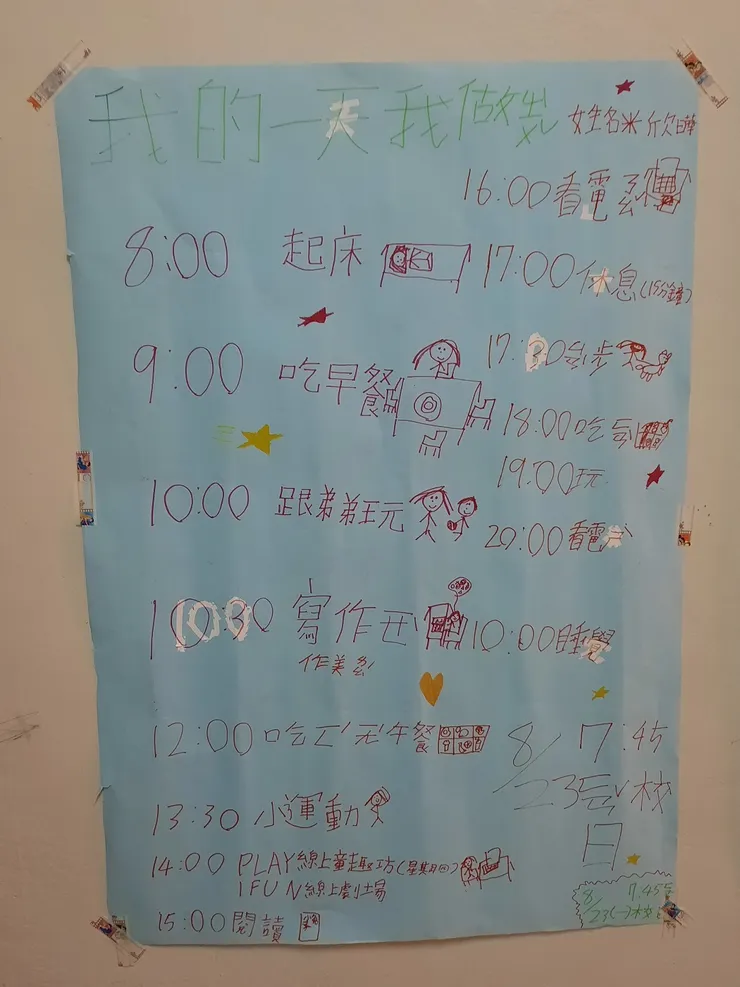 我的一天我做
女生名米欣曄
8:00 起床
9:00 吃早餐
10:00 跟弟弟玩
10:30 寫作
作美
12:00 吃ㄨˇ午餐
13:30 小運動
14:00 PLAY線上童趣坊(星期四)
IFUN線上劇場
15:00 閱讀
16:00 看電
17:00 休息(15分鐘)
17:30 步
18:00 吃
19:00 玩
20:00 看電
10:00 睡覺
8/23 7:45
校
日
7.45
8/23(一)